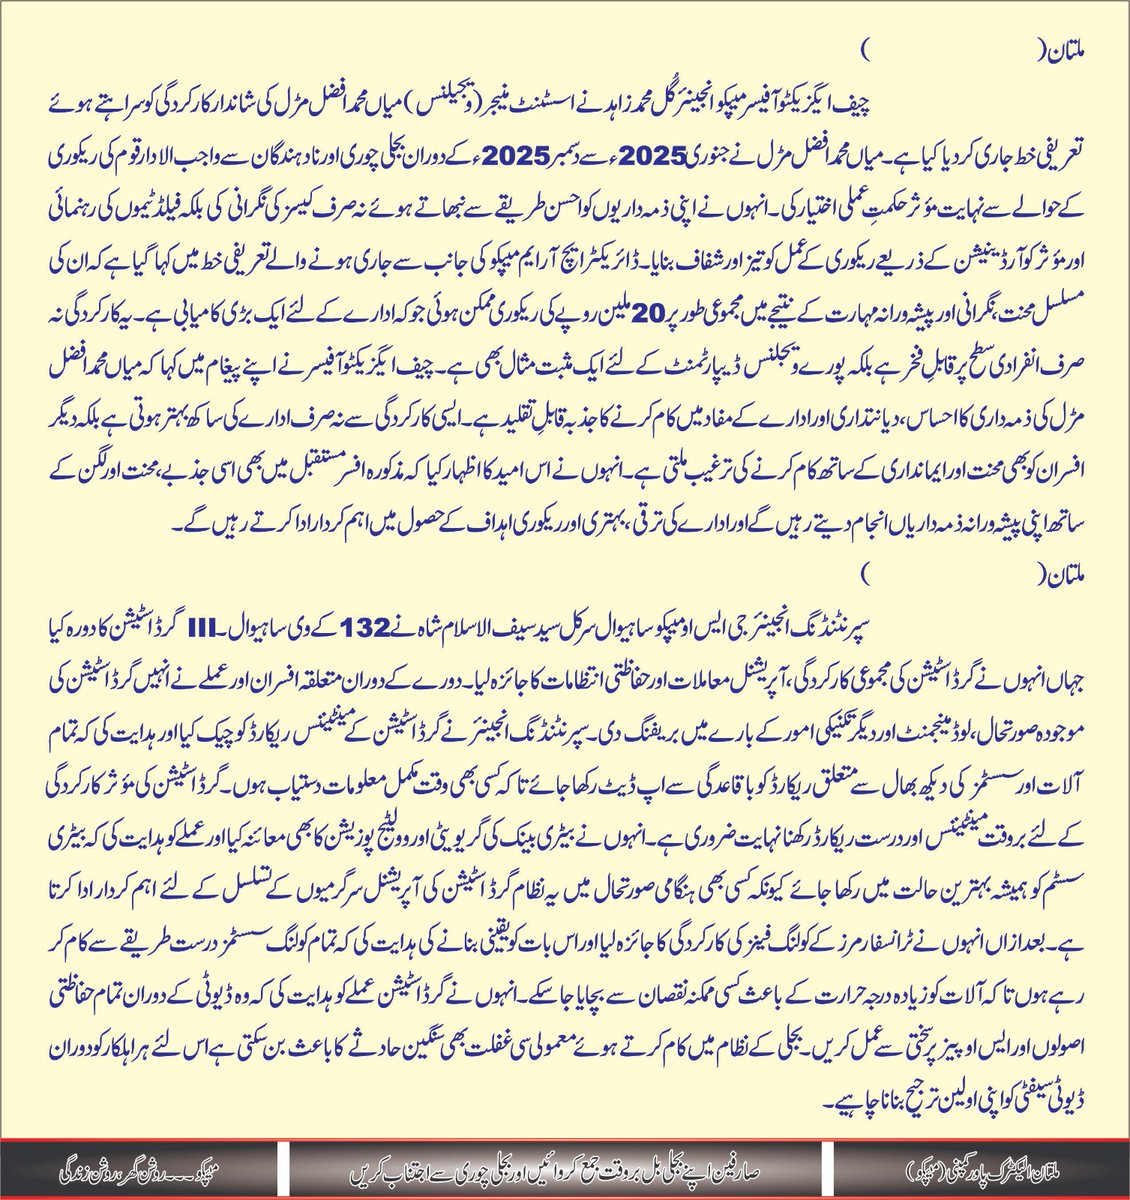 ملتان( )
چیف ایگزیکٹو آفیسر میپکو انجینئر گل محمد زاہد نے اسسٹنٹ منیجر (ویجیلنس) میاں محمد افضل مڑل کی شاندار کارکردگی کو سراہتے ہوئے
تعریفی خط جاری کر دیا کیا ہے۔ میاں محمد افضل مڑل نے جنوری 2025ء سے دسمبر 2025ء کے دوران بجلی چوری اور نادہندگان سے واجب الادا رقوم کی ریکوری
کے حوالے سے نہایت مؤثر حکمتِ عملی اختیار کی۔ انہوں نے اپنی ذمہ داریوں کو احسن طریقے سے نبھاتے ہوئے نہ صرف کیسز کی نگرانی کی بلکہ فیلڈ ٹیموں کی رہنمائی
اور مؤثر کوآرڈینیشن کے ذریعے ریکوری کے عمل کو تیز اور شفاف بنایا۔ ڈائریکٹر ایچ آر ایم میپکو کی جانب سے جاری ہونے والے تعریفی خط میں کہا گیا ہے کہ ان کی
مسلسل محنت، نگرانی اور پیشہ ورانہ مہارت کے نتیجے میں مجموعی طور پر 20 ملین روپے کی ریکوری ممکن ہوئی جو کہ ادارے کے لئے ایک بڑی کامیابی ہے۔ یہ کارکردگی نہ
صرف انفرادی سطح پر قابلِ فخر ہے بلکہ پورے ویجلنس ڈیپارٹمنٹ کے لئے ایک مثبت مثال بھی ہے۔ چیف ایگزیکٹو آفیسر نے اپنے پیغام میں کہا کہ میاں محمد افضل
مڑل کی ذمہ داری کا احساس، دیانتداری اور ادارے کے مفاد میں کام کرنے کا جذبہ قابلِ تقلید ہے۔ ایسی کارکردگی سے نہ صرف ادارے کی ساکھ بہتر ہوتی ہے بلکہ دیگر
افسران کو بھی محنت اور ایمانداری کے ساتھ کام کرنے کی ترغیب ملتی ہے۔ انہوں نے اس امید کا اظہار کیا کہ مذکورہ افسر مستقبل میں بھی اسی جذبے، محنت اور لگن کے
ساتھ اپنی پیشہ ورانہ ذمہ داریاں انجام دیتے رہیں گے اور ادارے کی ترقی، بہتری اور ریکوری اہداف کے حصول میں اہم کردار ادا کرتے رہیں گے۔
ملتان( )
سپرنٹنڈنگ انجینئر جی ایس او میپکو ساہیوال سرکل سید سیف الاسلام شاہ نے 132 کے وی ساہیوال۔III گرڈ اسٹیشن کا دورہ کیا
جہاں انہوں نے گرڈ اسٹیشن کی مجموعی کارکردگی، آپریشنل معاملات اور حفاظتی انتظامات کا جائزہ لیا۔ دورے کے دوران متعلقہ افسران اور عملے نے انہیں گرڈ اسٹیشن کی
موجودہ صورتحال، لوڈ مینجمنٹ اور دیگر تکنیکی امور کے بارے میں بریفنگ دی۔ سپرنٹنڈنگ انجینئر نے گرڈ اسٹیشن کے مینٹیننس ریکارڈ کو چیک کیا اور ہدایت کی کہ تمام
آلات اور سسٹمز کی دیکھ بھال سے متعلق ریکارڈ کو باقاعدگی سے اپ ڈیٹ رکھا جائے تاکہ کسی بھی وقت مکمل معلومات دستیاب ہوں۔ گرڈ اسٹیشن کی مؤثر کارکردگی
کے لئے بروقت مینٹیننس اور درست ریکارڈ رکھنا نہایت ضروری ہے۔ انہوں نے بیٹری بینک کی گریویٹی اور وولٹیج پوزیشن کا بھی معائنہ کیا اور عملے کو ہدایت کی کہ بیٹری
سسٹم کو ہمیشہ بہترین حالت میں رکھا جائے کیونکہ کسی بھی ہنگامی صورتحال میں یہ نظام گرڈ اسٹیشن کی آپریشنل سرگرمیوں کے تسلسل کے لئے اہم کردار ادا کرتا
ہے۔ بعدازاں انہوں نے ٹرانسفارمرز کے کولنگ فینز کی کارکردگی کا جائزہ لیا اور اس بات کو یقینی بنانے کی ہدایت کی کہ تمام کولنگ سسٹمز درست طریقے سے کام کر
رہے ہوں تاکہ آلات کو زیادہ درجہ حرارت کے باعث کسی ممکنہ نقصان سے بچایا جا سکے۔ انہوں نے گرڈ اسٹیشن عملے کو ہدایت کی کہ وہ ڈیوٹی کے دوران تمام حفاظتی
اصولوں اور ایس او پیز پر سختی سے عمل کریں۔ بجلی کے نظام میں کام کرتے ہوئے معمولی سی غفلت بھی سنگین حادثے کا باعث بن سکتی ہے اس لئے ہر اہلکار کو دوران
ڈیوٹی سیفٹی کو اپنی اولین ترجیح بنانا چاہیے۔
ملتان الیکٹرک پاور کمپنی (میپکو) صارفین اپنے بجلی بل بروقت جمع کروائیں اور بجلی چوری سے اجتناب کریں میپکو ۔۔۔ روشن گھر، روشن زندگی